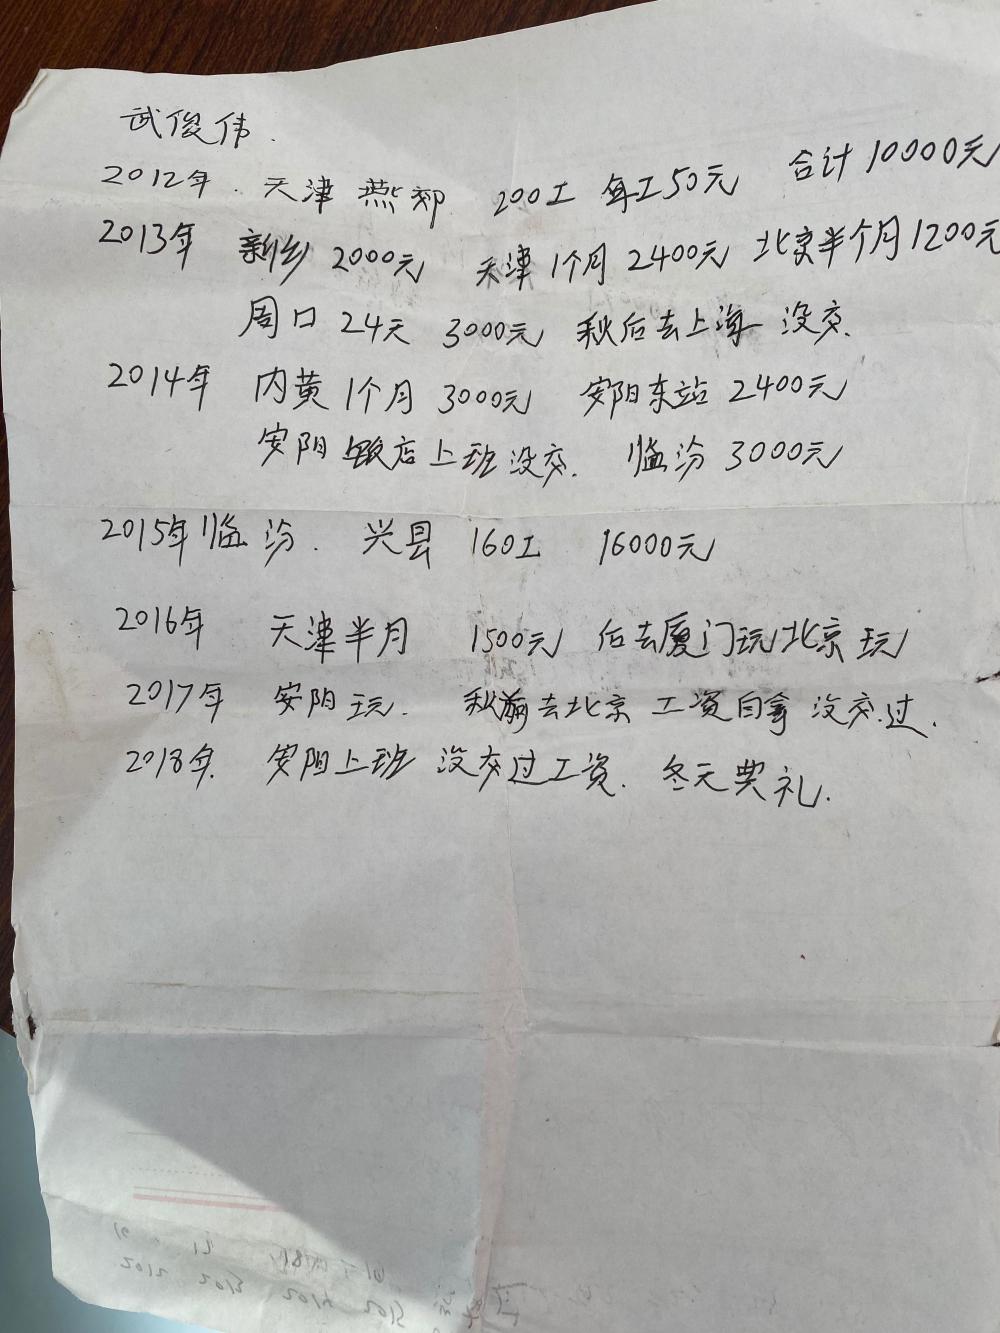 武俊伟.
2012年. 天津 燕郊. 200工 每工50元 合计10000元
2013年 新乡 2000元 天津1个月 2400元 北京半个月1200元
周口 24天 3000元 秋后去上海 没交.
2014年 内黄 1个月 3000元 安阳东站 2400元
安阳饭店上班没交. 临汾 3000元
2015年临汾. 兴县 160工 16000元
2016年 天津半月 1500元 后去厦门玩北京玩
2017年 安阳玩. 秋前去北京 工资自拿 没交过.
2018年. 安阳上班 没交过工资. 冬天典礼.